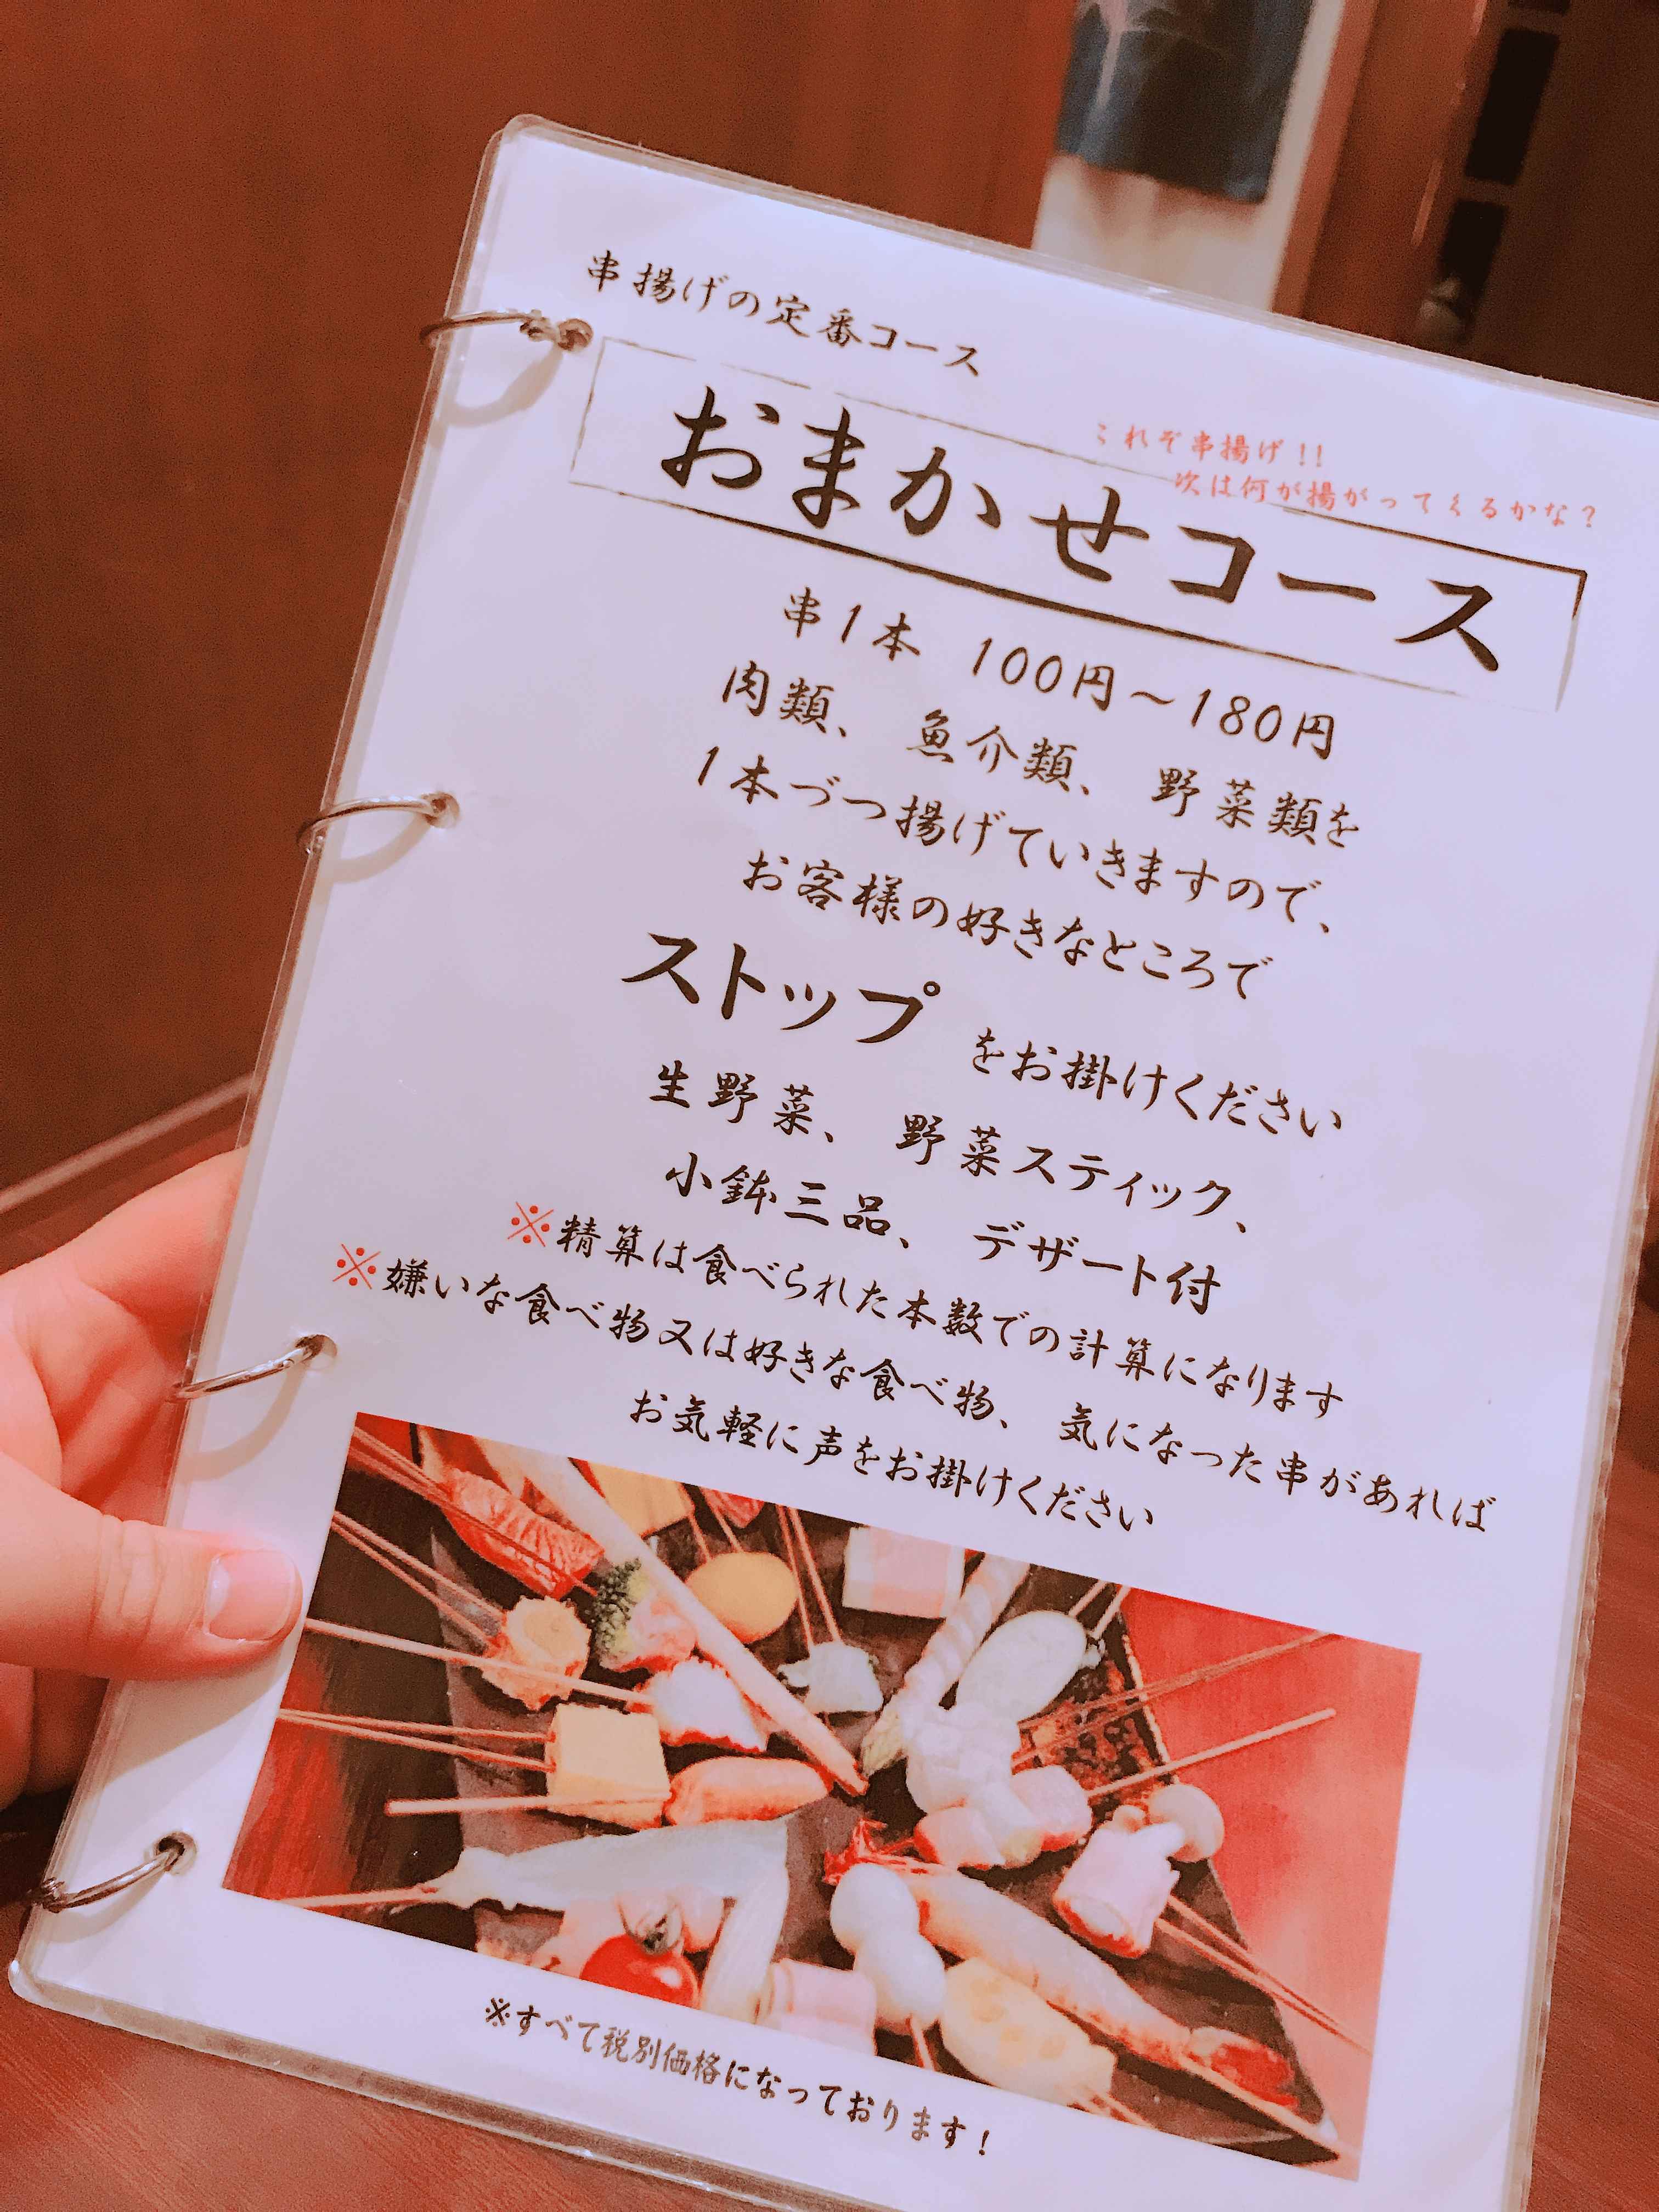 串揚げの定番コース
これぞ串揚げ!!
次は何が揚がってくるかな?
おまかせコース
串1本 100円~180円
肉類、 魚介類、 野菜類を
1本づつ揚げていきますので、
お客様の好きなところで
ストップ をお掛けください
生野菜、 野菜スティック、
小鉢三品、 デザート付
※精算は食べられた本数での計算になります
※嫌いな食べ物又は好きな食べ物、 気になった串があれば
お気軽に声をお掛けください
※すべて税別価格になっております!